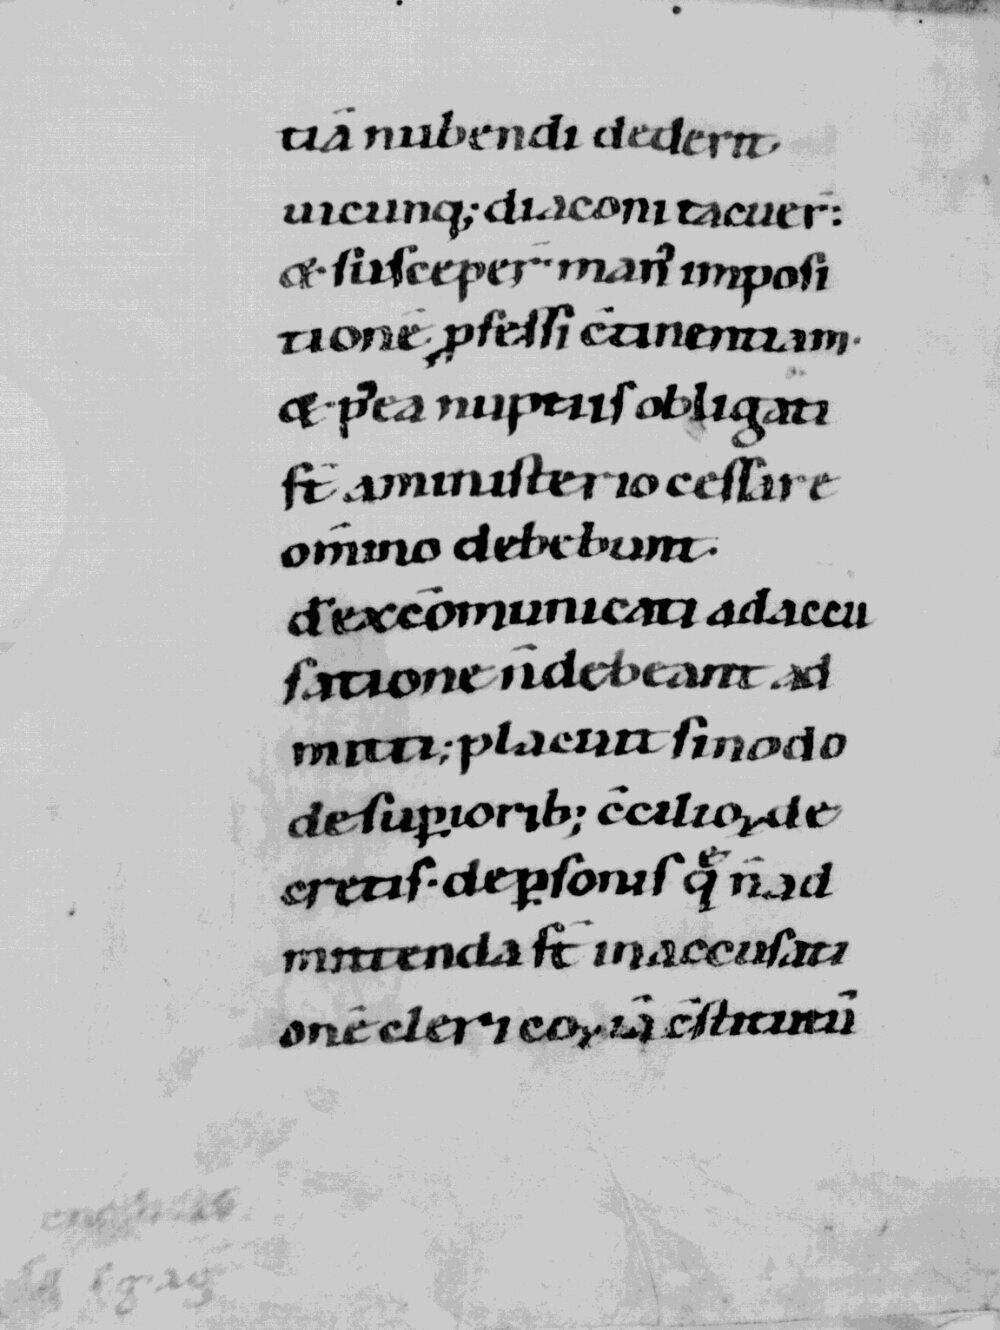 tiā nubendi dederit·
uicunq; diaconi tacuer̄:
&· susceper̄· man᷒ imposi
tionē ꝑfessi c̄tinentiam·
&· p᷒ea nuptiis obligati
st̄ a ministerio cessare
om̄ino debebunt·
d̄ excōmunicati ad accu
satione n̄ debeant ad
mitti; placuit sinodo
de suꝑiorib; c̄cilioꝝ de
cretis· de ꝑsonis qͤ n̄ ad
mittenda st̄ in accusati
onē clericoꝝ iā c̄stitutū